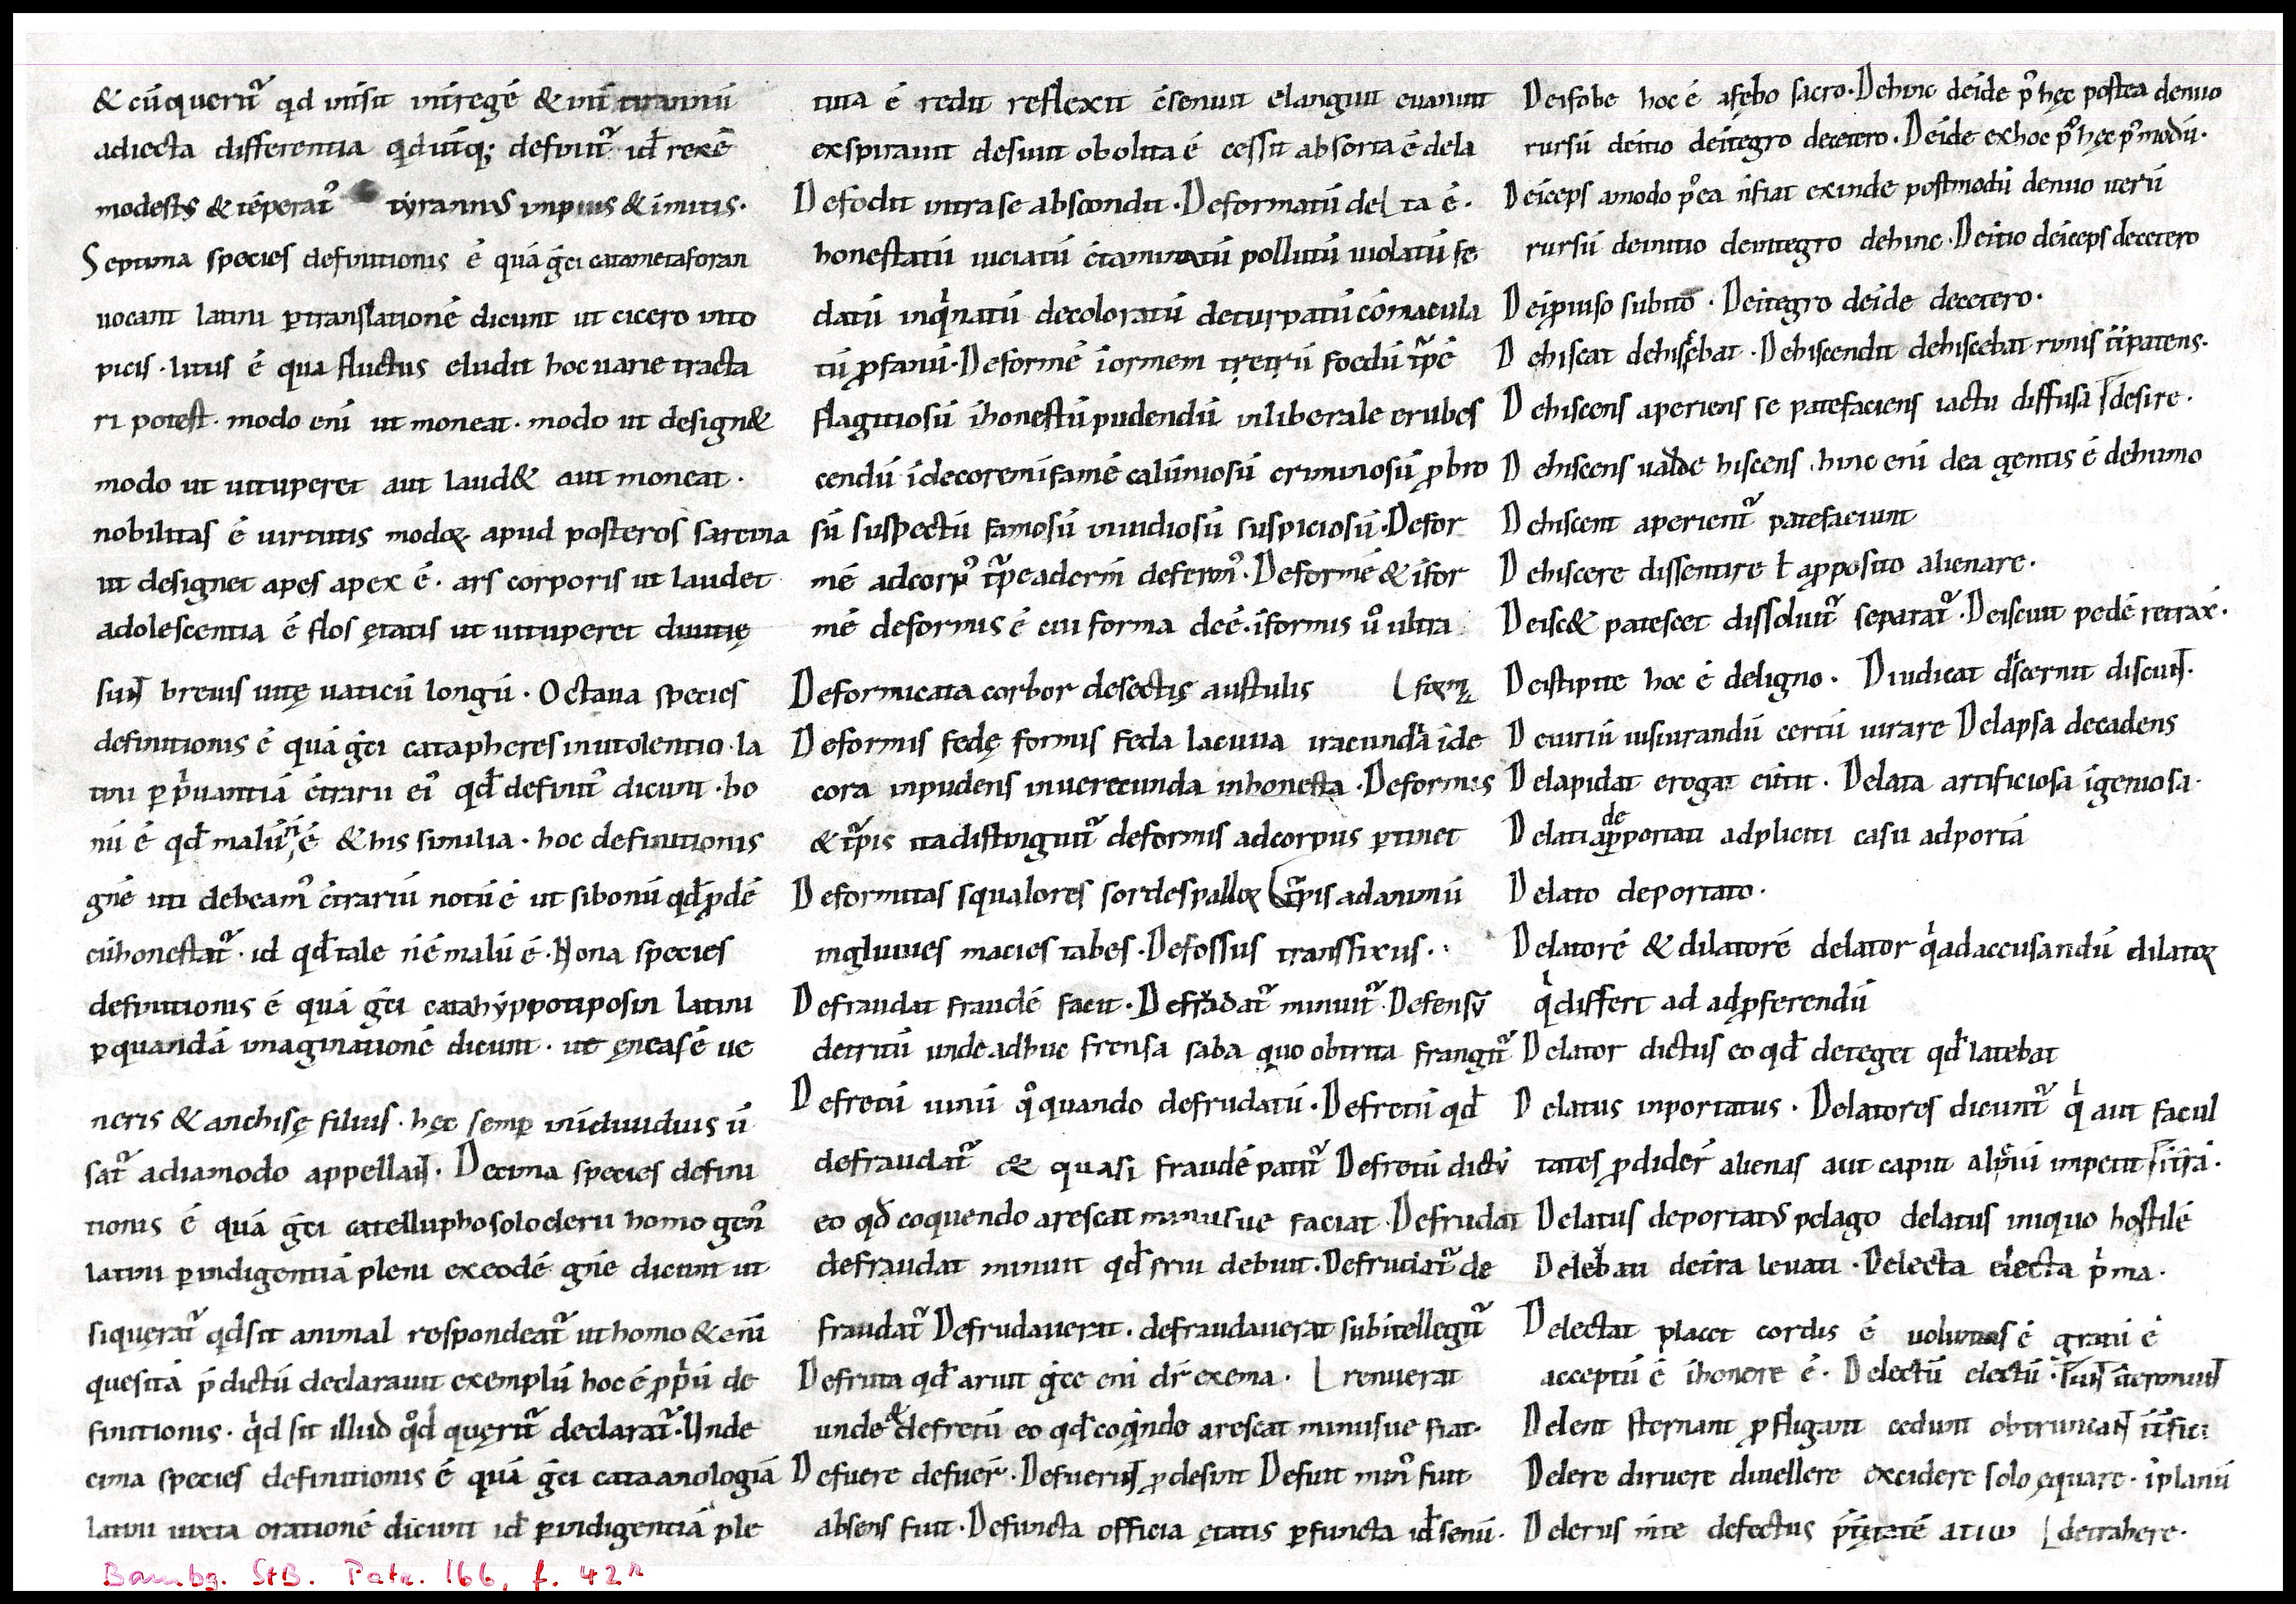 & cū querit᷑ qd int̄sit int̄regē & int̄ tirannū
adiecta differentia qd utrq; definit᷑ id̄ rex ē
modestꝰ & tēperatꝰ tyrannꝰ impius & īmitis·
Septima species definitionis ē quā g̅ci catametaforan
uocant latini ꝑtranslationē dicunt ut cicero into
picis · litus ē qua fluctus eludit hoc uarie tracta
ri potest · modo enī ut moneat · modo ut design&
modo ut uituperet aut laud& aut moneat ·
nobilitas ē uirtutis modoꝝ apud posteros sarcina
ut designet apes apex ē · ars corporis ut laudet
adolescentia ē flos ętatis ut uituperet diuitię
breuis uitę uaticū longū · Octaua species
definitionis ē quā g̅ci catapheresin utolentio · la
tini ꝑ pͥuantiā ētrarii eiꝰ qd̄ definit᷑ dicunt · bo
nū ē qd̄ malū n̄ ē & his similia · hoc definitionis
gn̄e uti debeamꝰ ētrariū notū ē ut si bonū qd̄ ꝓdē
cū honestat᷑ · id qd̄ tale n̄ ē malū ē · Nona species
definitionis ē quā g̅ci catahyppotiposin latini
ꝑ quandā imaginationē dicunt · ut ęneas ē ue
neris & anchisę filius · hęc semꝑ in īdiuiduis ū
sat᷑ adiamodo appellant · Decima species defini
tionis ē quā g̅ci catelluphosoloderu homo gen̄
latini ꝑ indigentiā pleni ex eodē gn̄e dicunt ut
si quęrat᷑ qd̄ sit animal respondeat᷑ ut homo & enī
quesitā p̄dictū declarauit exemplū hoc ē ꝓpͥū de
finitionis · qͥd sit illud qd̊ quęrit᷑ declarat᷑ · Unde
cima species definitionis ē quā g̅ci cataanologiā
latini iuxta orationē dicunt id̄ ꝑ indigentiā ple
tita ē redit reflexit ēsenuit elanguit euanuit
exspirauit desiuit obolita ē cessit absorta ē dela
Defodit intra se abscondit · Deformatū de⌊ta ē ·
honestatū uiciatū ētaminatū pollutū uiolatū fe
datū inqͥnatū decoloratū deturpatū cōmacula
tū ꝓfanū · Deformē īormem tętrū foedū t᷑pē
flagitiosū īhonestū pudendū inliberale erubes
cendū īdecorem īfamē calūniosū criminosū ꝓbro
sū suspectū famosū inuidiosū suspiciosū · Defor
mē ad corpꝰ t᷑pe · Deformē & īfor
mē deformis ē cui forma deē · īformis u̾ ultra
Deformicata corbor desectis austulis ⌊formā
Deformis fedę formis feda lacuna iracunda īde
cora inpudens inuerecunda inhonesta · Deformis
& t᷑pis ita distinguit᷑ deformis ad corpus ꝑtinet
Deformitas squalores sordes palloꝝ ⌊t᷑pis ad animū
ingluuies macies tabes · Defossus transfixus ·
Defraudat fraudē facit · Defradat᷑ minuit᷑ · Defensū
detritū unde adhuc frensa faba quo obtrita frangit᷑
Defretū uinū qͦquando defrudatū · Defretū qd̄
defraudat᷑ & quasi fraudē patit᷑ Defretū dictū
eo qd̄ coquendo arescat minusue faciat · Defrudat
defraudat minuit qd̄ frui debuit · Defrudat᷑ de
fraudat᷑ Defrudauerit · defraudauerat subitellegit᷑
Defruta qd̄ aruit g̅ce eni dr̄ exema · ⌊renuerat
unde & defretū eo qd̄ coqͥndo arescat minusue fiat ·
Defuere defuer̄ · Defuerint ꝓdesint Defuit minꝰ fuit
absens fuit · Defuncta officia ętatis ꝑfuncta id̄ senū ·
De ifobe hoc ē afębo sacro · Dehinc deīde pꝰ hęc postea denuo
rursū deītio deītegro decetero · Deīde ex hoc pꝰ hęc pꝰ modū ·
Deīceps amodo pꝰea n̄ fiat exinde postmodū denuo uerū
rursū deinitio deintegro dehinc · Deītio deīceps decetero
Deīꝓuiso subito · Deītegro deīde decetero ·
Dehiscat dehiscebat · Dehiscendit dehiscebat patens ·
Dehiscens aperiens se patefaciens iactu diffusa ⌈desire ·
Dehiscens ualde hiscens · hinc enī dea gentis ē dehimo
Dehiscent aperient᷑ patefaciunt
Dehiscere dissentire ł a ꝓposito alienare ·
Deisc& patescet dissoluit᷑ separat᷑ · Deiscuit pedē retrax̄ ·
Deistipite hoc ē deligno · Diiudicat discernit
Deiuriū iusiurandū certū iurare Delapsa decadens
Delapidat erogat · Delata artificiosa īgeniosa ·
Delati apportati adpliciti casu adportā
de
Delato deportato ·
Delatorē & dilatorē delator qͥ ad accusandū dilatoꝝ
qͥ differt ad adꝓferendū
Delator dictus eo qd̄ deteget qd̄ latebat
Delatus inportatus · Delatores dicunt᷑ qͥ aut facul
tates ꝓdider̄ alienas aut caput inpetit
Delatus deportatꝰ pelago delatus iniquo hostilē
Delebati detra leuati · Delecta electa pͥma ·
Delectat placet cordis ē uoluntas ē gratū ē
acceptū ē īhonore ē · Delectū electū ·
Delent sternant ꝓfligant cedunt obtruncant
Delere diruere diuellere excidere solo ęquare · īplanū
Delerus mente defectus ⌊detrahere ·
Bambg. StB. Patr. 166, f. 42ʳ